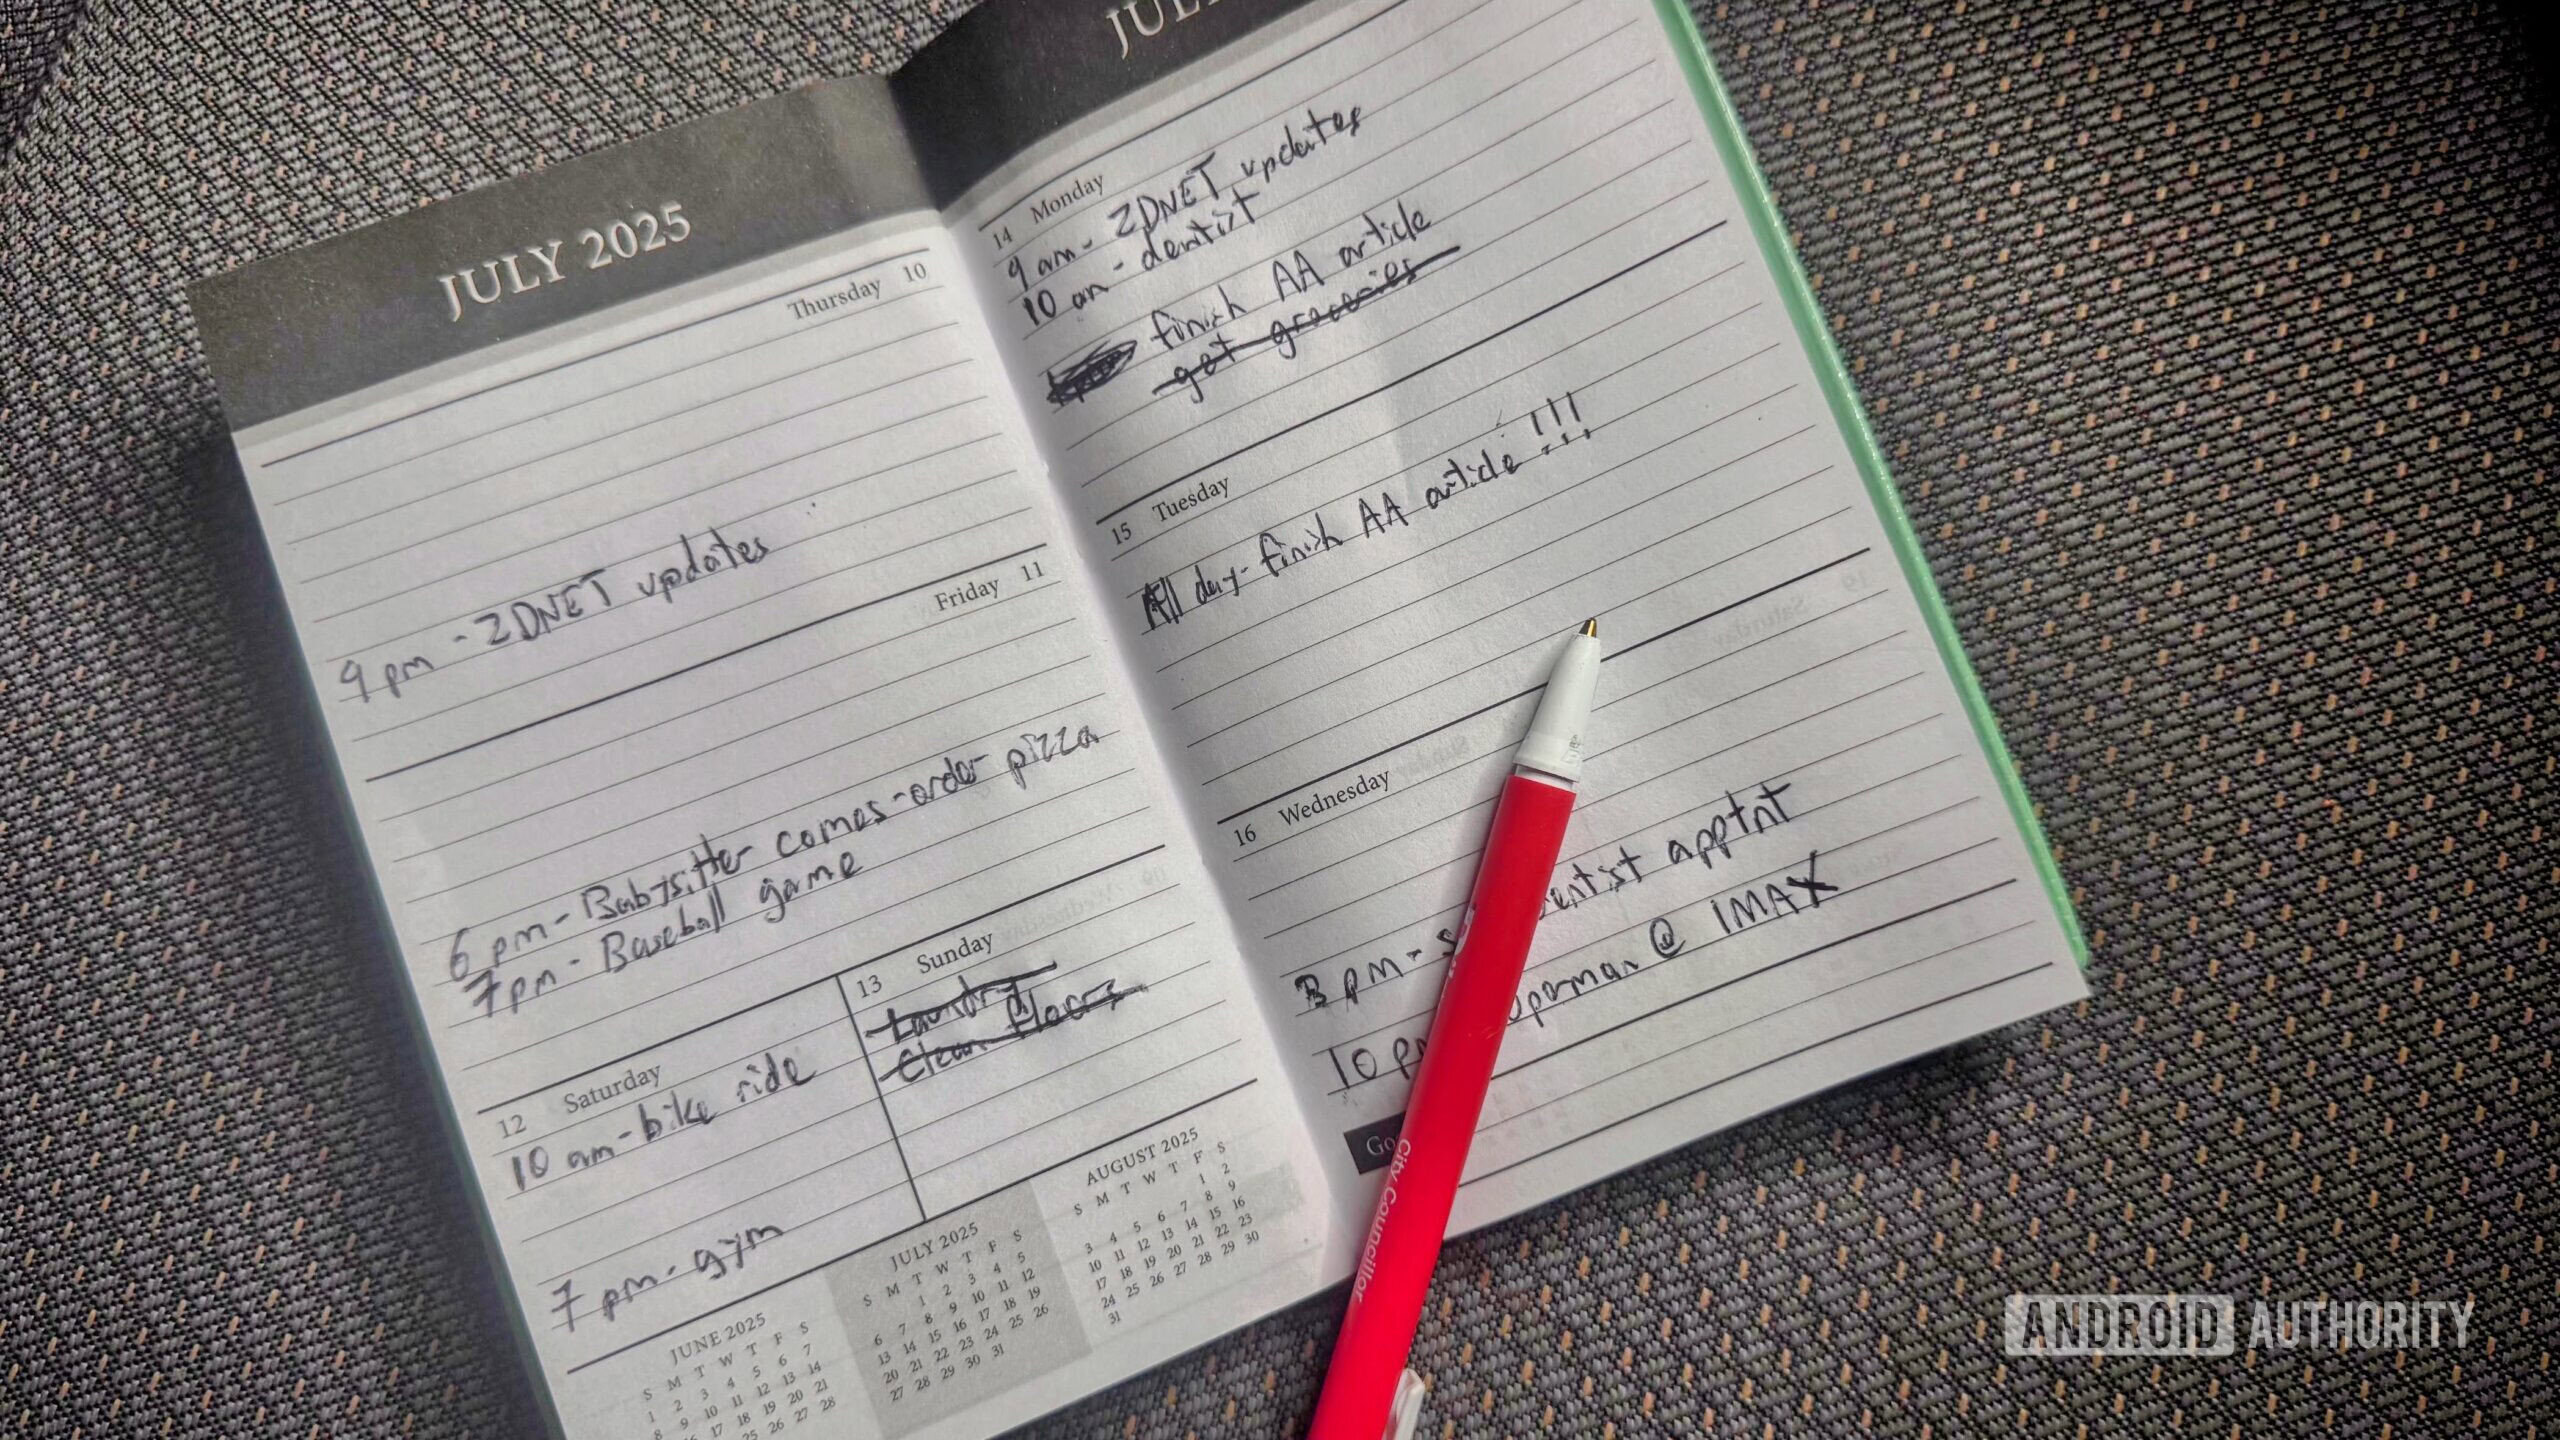 JULY 2025
Thursday 10
9 pm - ZDNET updates
Friday 11
6 pm - Babysitter comes - order pizza
7 pm - Baseball game
12 Saturday
10 am - bike ride
7 pm - gym
13 Sunday
Laundry
Clean floors
JUNE 2025
S M T W T F S
1 2 3 4 5 6 7
8 9 10 11 12 13 14
16 17 18 19 20 21
25 26 27 28
JULY 2025
S M T W T F S
1 2 3 4 5
6 7 8 9 10 11 12
13 14 15 16 17 18 19
20 21 22 23 24 25 26
27 28 29 30 31
AUGUST 2025
S M T W T F S
1 2
3 4 5 6 7 8 9
10 11 12 13 14 15 16
17 18 19 20 21 22 23
24 25 26 27 28 29 30
31
14 Monday
9 am - ZDNET updates
10 am - dentist
finish AA article
get groceries
15 Tuesday
All day - finish AA article !!!
16 Wednesday
3 pm - apptnt
10 @ IMAX
City Councillor
ANDROID AUTHORITY